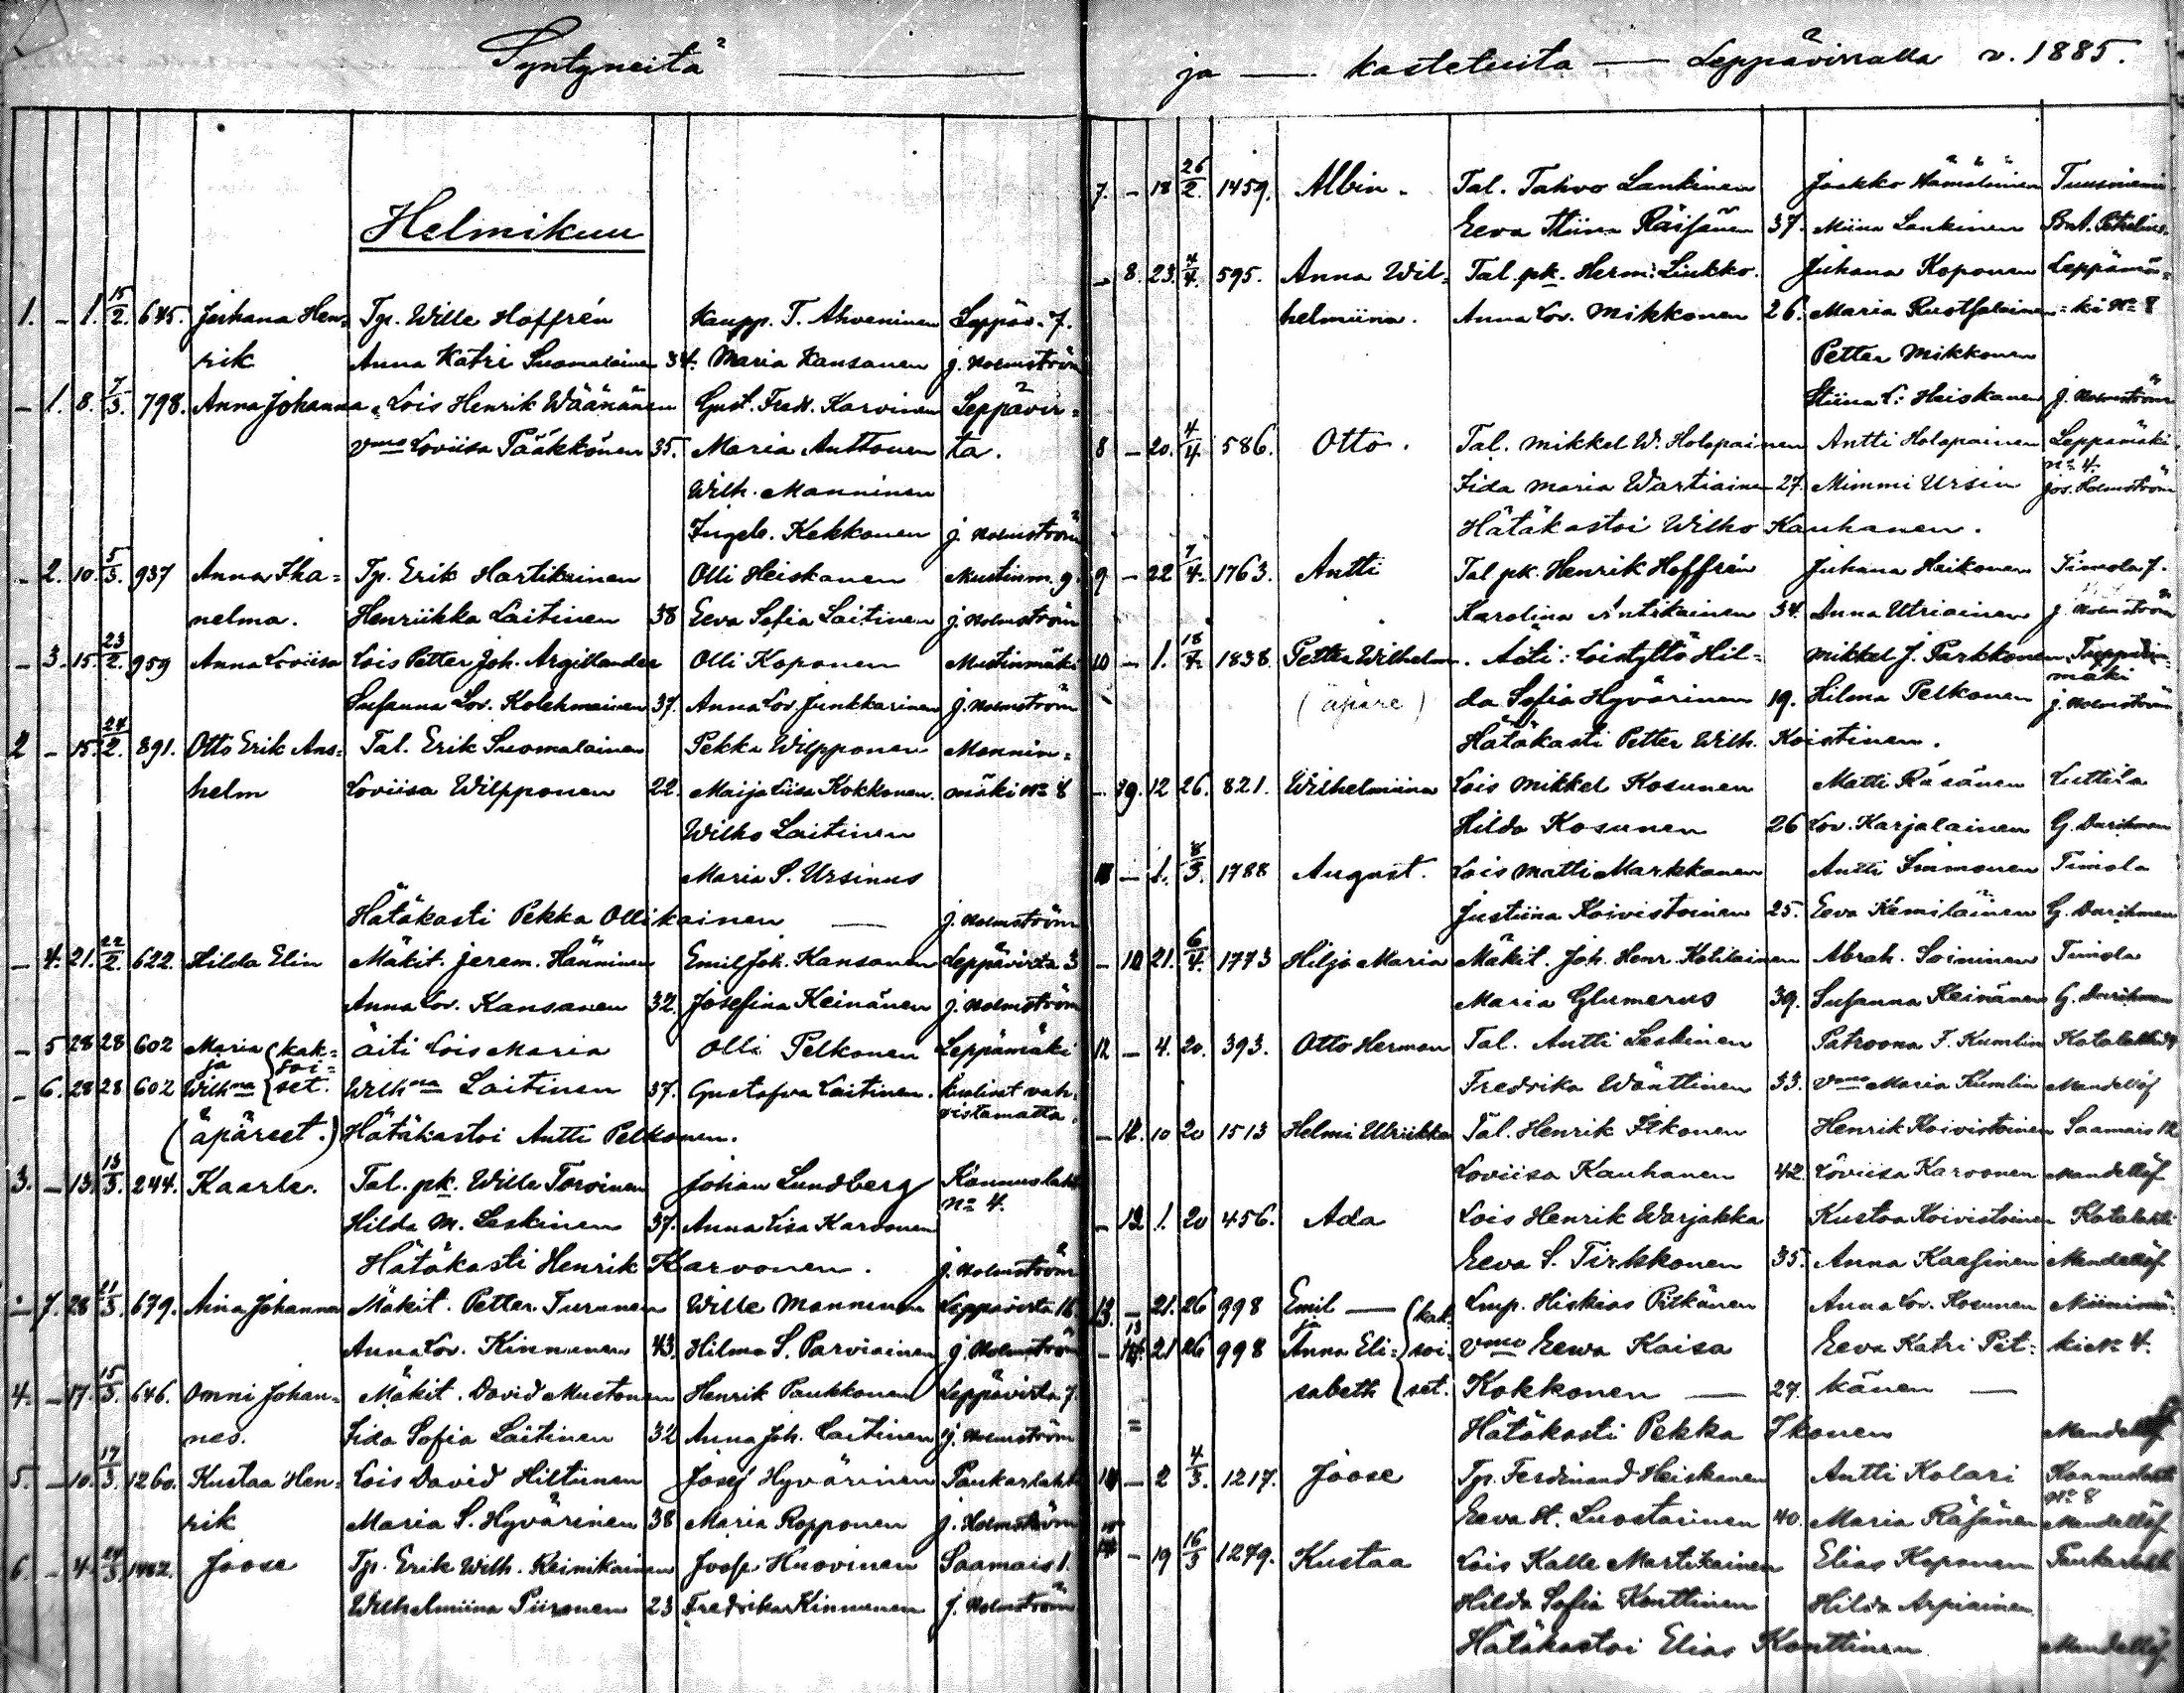 Syntyneitä
Helmikuu
1. – 1. 15/2. 645. Juhana Hen= Tp. Wille Hoffrén Kaupp. T. Ahveninen Leppäv. 7.
rik Anna Katri Suomalainen 34. Maria Kansanen J. Holmström
– 1. 8. 7/3. 798. Anna Johanna Lois Henrik Wäänänen Gust. Fredr. Karvinen Leppävir=
vmo Loviisa Pääkkönen 35. Maria Anttonen ta.
Wilh. Manninen
Ingeb. Kekkonen J. Holmström
– 2. 10. 5/3. 937 Anna Iha= Tp. Erik Hartikainen Olli Heiskanen Mustinm. 9.
nelma. Henriikka Laitinen 38 Eeva Sofia Laitinen J. Holmström
– 3. 15. 23/2. 959 Anna Loviisa Lois Petter Joh. Argillander Olli Koponen Mustinmäki
Susanna Lov. Kolehmainen 37. Anna Lov. Junkkarinen J. Holmström
2 – 15. 24/2. 891. Otto Erik Ans= Tal. Erik Suomalainen Pekka Wilpponen Mannin=
helm Loviisa Wilpponen 22. Maija Liisa Kokkonen. mäki No 8
Wilho Laitinen
Maria S. Ursinus
Hätäkasti Pekka Ollikainen — J. Holmström
– 4. 21. 22/2. 622. Hilda Elin Mäkit. Jerem. Hänninen Emil Joh. Kansanen Leppävirta 3
Anna Lov. Kansanen 32. Josefina Keinänen J. Holmström
– 5 28 28 602 Maria (kak= äiti Lois Maria Olli Pelkonen Leppämäki
ja soi=
– 6. 28 28 602 Wilhna set. Wilhna Laitinen 37. Gustafva Laitinen. kuolivat vah=
vistamatta.
(äpäreet.) Hätäkastoi Antti Pelkonen.
3. – 13. 13/3. 244. Kaarle. Tal. pk. Wille Toroinen Johan Lundberg Konnuslaht
No 4.
Hilda M. Leskinen 37. Anna Liisa Karvonen
Hätäkasti Henrik Karvonen. J. Holmström
– 7. 28 11/3. 679. Aina Johanna Mäkit. Petter Turunen Wille Manninen Leppävirta 16
Anna Lov. Kinnunen 43. Hilma S. Parviainen J. Holmström
4. – 17. 15/3. 646. Onni Johan= Mäkit. David Mustonen Henrik Paukkonen Leppävirta 7.
nes. Iida Sofia Laitinen 32 Anna Joh. Laitinen J. Holmström
5. – 10. 17/3. 1260. Kustaa Hen= Lois David Hiltunen Josef Hyvärinen Paukarlahti
rik Maria S. Hyvärinen 38 Maria Ropponen J. Holmström
6. – 4. 24/3. 1402. Joose Tp. Erik Wilh. Reinikainen Joose Huovinen Saamais 1.
Wilhelmiina Piironen 23 Fredrika Kinnunen J. Holmström
ja — kastetuita — Leppävirralla v. 1885.
7. – 18 26/2. 1459. Albin. Tal. Tahvo Lankinen Jaakko Hämäläinen Tuusniemi
Eeva Stiina Räisänen 37. Miina Lankinen
– 8. 23. 4/4. 595. Anna Wil= Tal. pk. Herm. Liukko. Juhana Koponen Leppämä=
helmiina. Anna Lov. Mikkonen 26. Maria Ruotsalainen =ki No 8
Petter Mikkonen
Stiina L. Heiskanen J. Holmström
8 – 20. 4/4 586. Otto. Tal. Mikkel W. Holopainen Antti Holopainen Leppämäki
No 4.
Iida Maria Wartiainen 27. Mimmi Ursin Jos. Holmström
Hätäkastoi Wilho Kauhanen.
9 – 22 7/4. 1763. Antti Tal pk. Henrik Hoffrén Juhana Heikonen Timola 7.
Karolina Antikainen 34. Anna Utriainen J. Holmström
10 – 1. 18/7. 1838. Petter Wilhelm. Äiti: Loistyttö Hil= Mikkel J. Parkkonen
mäki
(äpäre) da Sofia Hyvärinen 19. Hilma Pelkonen J. Holmström
Hätäkasti Petter Wilh. Koistinen.
– 9. 12 26. 821. Wilhelmiina Lois Mikkel Kosunen Matti Räsänen Luttila
Hilda Kosunen 26 Lov. Karjalainen G. Durchman
– 1. 8/3. 1788 August. Lois Matti Markkanen Antti Immonen Timola
Justiina Koivistoinen 25. Eeva Kemiläinen G. Durchman
– 10 21. 6/4. 1773 Hilja Maria Mäkit. Joh. Henr. Kohilainen Abrah. Soininen Timola
Maria Glumerus 39. Susanna Keinänen G. Durchman
12 – 4. 20. 393. Otto Herman Tal. Antti Leskinen Patroona F. Kumlin Kotalahti
Fredrika Wänttinen 33. vmo Maria Kumlin Mandellöf
– 10 20 1513 Helmi Ulriikka Tal. Henrik Itkonen Henrik Koivistoinen Saamais 12
Loviisa Kauhanen 42. Loviisa Karvonen Mandellöf
– 12 1. 20 456. Ada Lois Henrik Warjakka Kustaa Koivistoinen Kotalahti
Eeva S. Tirkkonen 35. Anna Kaasinen Mandellöf
13. – 21. 26 998 Emil — (kak= Lmp. Hiskias Pitkänen Anna Lov. Kosunen
ja
– 21 26 998 Anna Eli= soi= vmo Eewa Kaisa Eeva Katri Pit= ki No 4.
sabeth set. Kokkonen — 27. känen —
Hätäkasti Pekka Ikonen Mandellöf
14 – 2 4/3. 1217. Joose Tp. Ferdinand Heiskanen Antti Kolari Konnuslahti
No 8
Eeva St. Luostarinen 40. Maria Räsänen Mandellöf
– 19 16/3 1279. Kustaa Lois Kalle Martikainen Elias Koponen Paukarlahti
Hilda Sofia Konttinen Hilda Arpiainen
Hätäkastoi Elias Konttinen Mandellöf